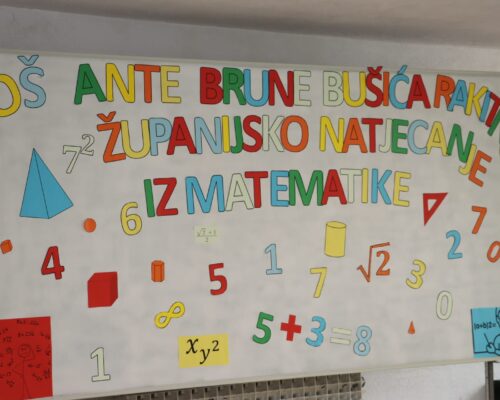 OŠ ANTE BRUNE BUŠIĆA RAKIT
ŽUPANIJSKO NATJECANJE
IZ MATEMATIKE
7²
6
4
5
1
7
√2
3
2
7
0
0
∞
1
xy²
5+3=8